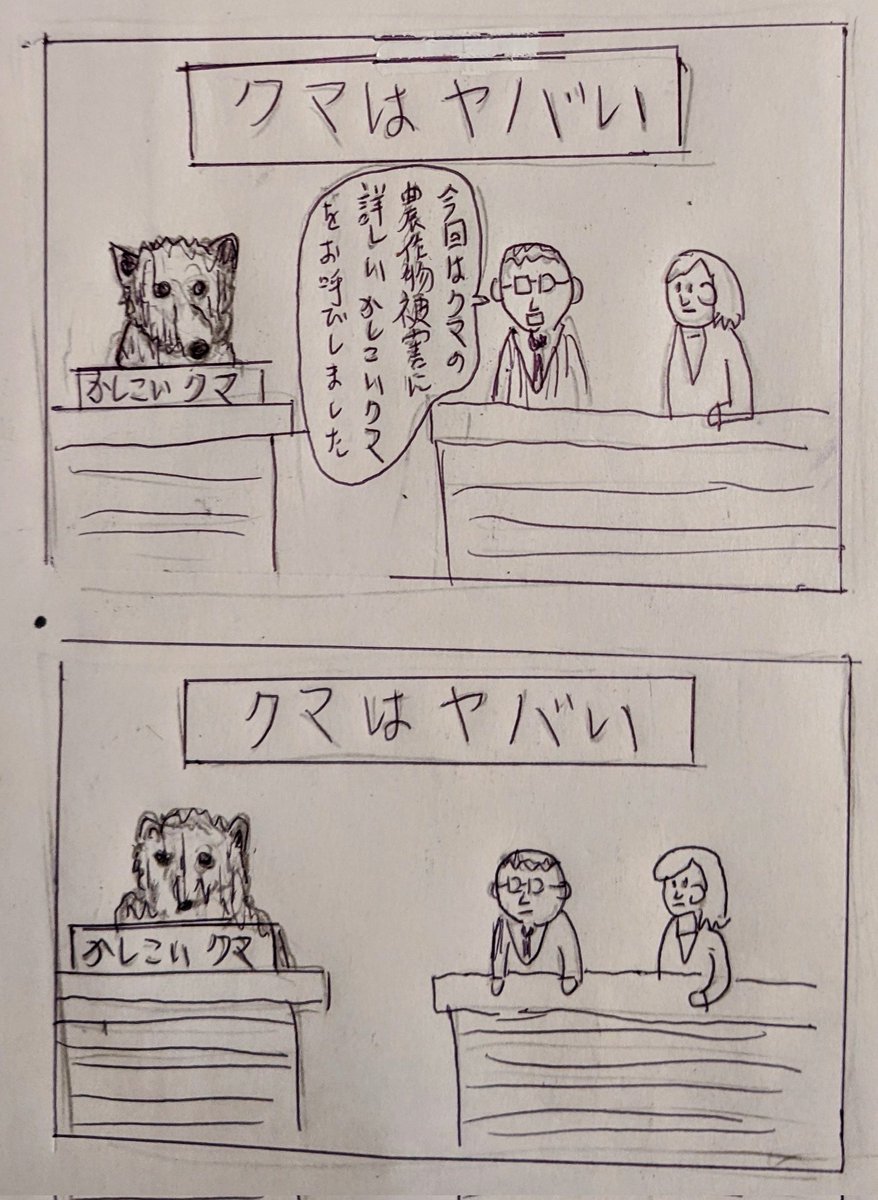 クマはヤバい
今回はクマの
農作物被害に
詳しいかしこいクマ
をお呼びしました
かしこいクマ
クマはヤバい
かしこいクマ